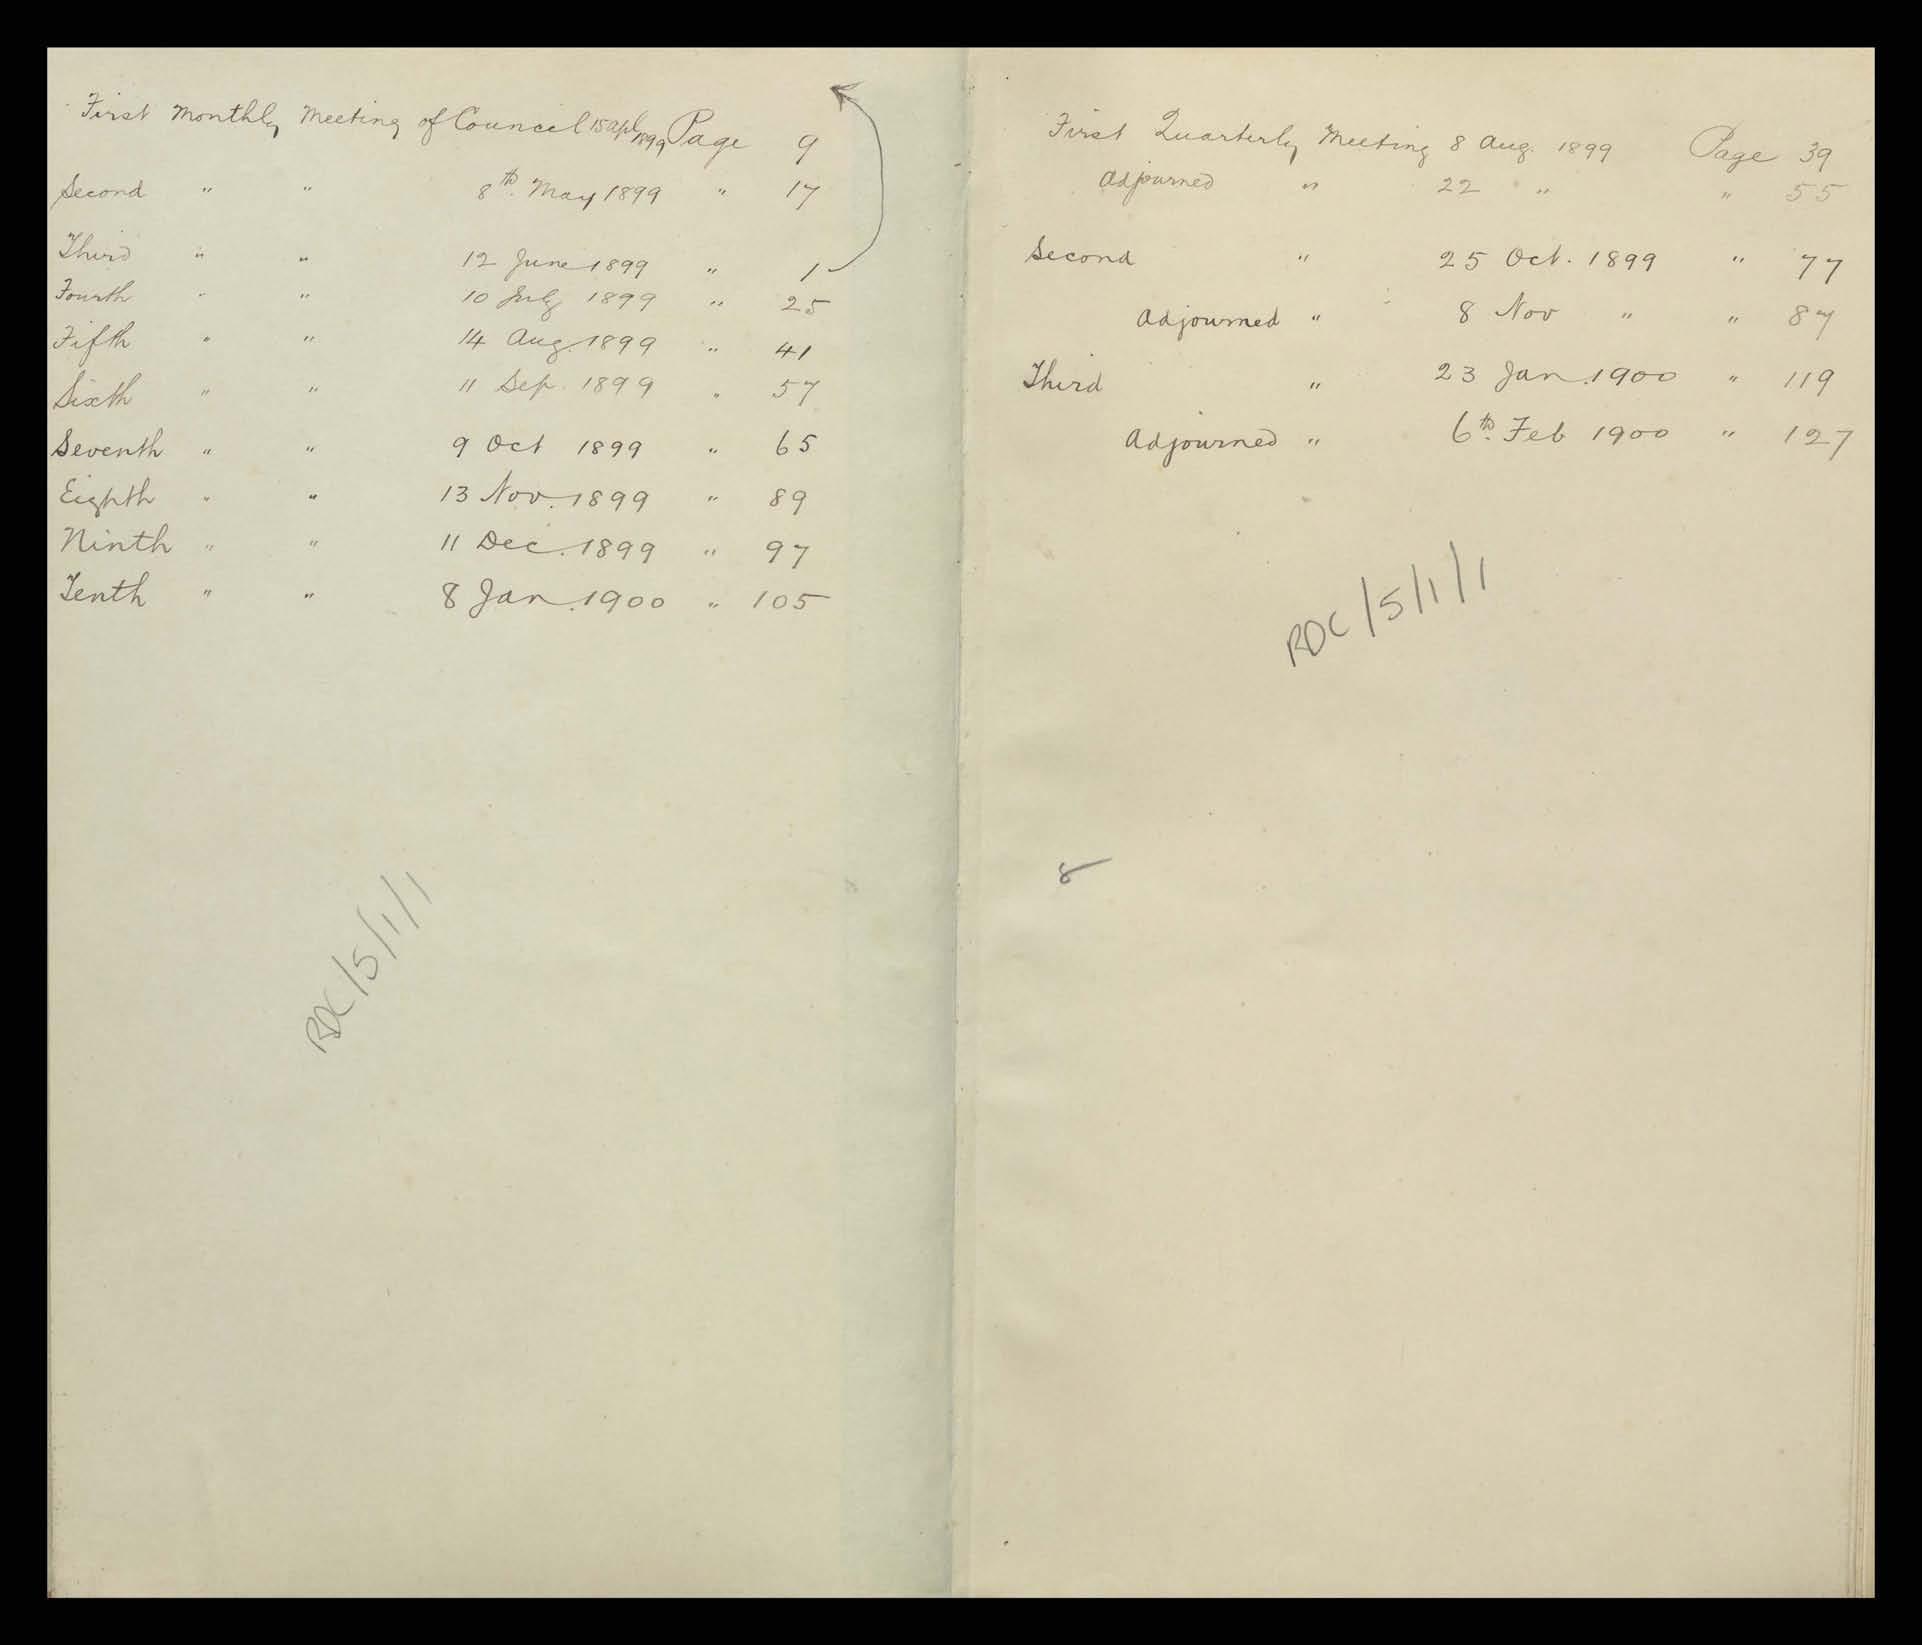 First Monthly Meeting of Council 15 Apl 1899 Page 9
Second " " 8th. May 1899 " 17
Third " " 12 June 1899 " 1
Fourth " " 10 July 1899 " 25
Fifth " " 14 Aug. 1899 " 41
Sixth " " 11 Sep. 1899 " 57
Seventh " " 9 Oct 1899 " 65
Eighth " " 13 Nov. 1899 " 89
Ninth " " 11 Dec. 1899 " 97
Tenth " " 8 Jan. 1900 " 105
RDC/5/1/1
First Quarterly Meeting 8 Aug. 1899 Page 39
Adjourned " 22 " " 55
Second " 25 Oct. 1899 " 77
Adjourned " 8 Nov " " 87
Third " 23 Jan. 1900 " 119
Adjourned " 6th. Feb 1900 " 127
RDC/5/1/1
8